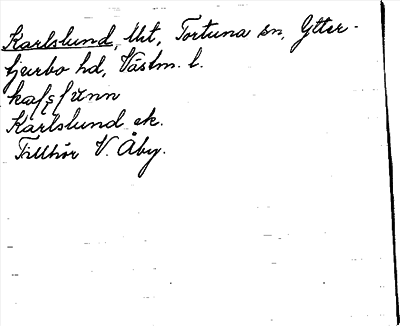 Karlslund, lht, Tortuna sn, Ytter-
tjurbo hd, Västm. l.
Karlslund ek.
Tillhör V. Åby.